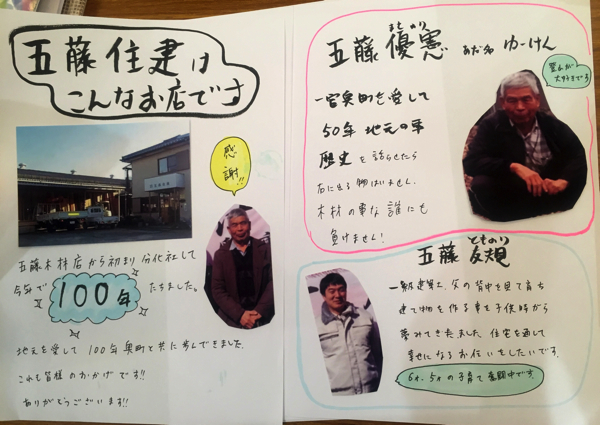 五藤住建は
こんなお店です
感謝!!
五藤木材店から初まり分化社して
今年で100年たちました。
地元を愛して100年奥町と共に歩んできました。
これも皆様のおかげです!!
ありがとうございます!!
まさのり
五藤 優憲 あだ名 ゆーけん
登山が
大好きです
一宮奥町を愛して
50年 地元の事
歴史を語らせたら
右にでる物はいません。
木材の事なら誰にも
負けません!
とものり
五藤 友規
一級建築士、父の背中を見て育ち
建て物を作る事を子供時から
夢みてきました 住宅を通して
幸せになるお伝いをしたいです。
6才、5才の子育て奮闘中です。